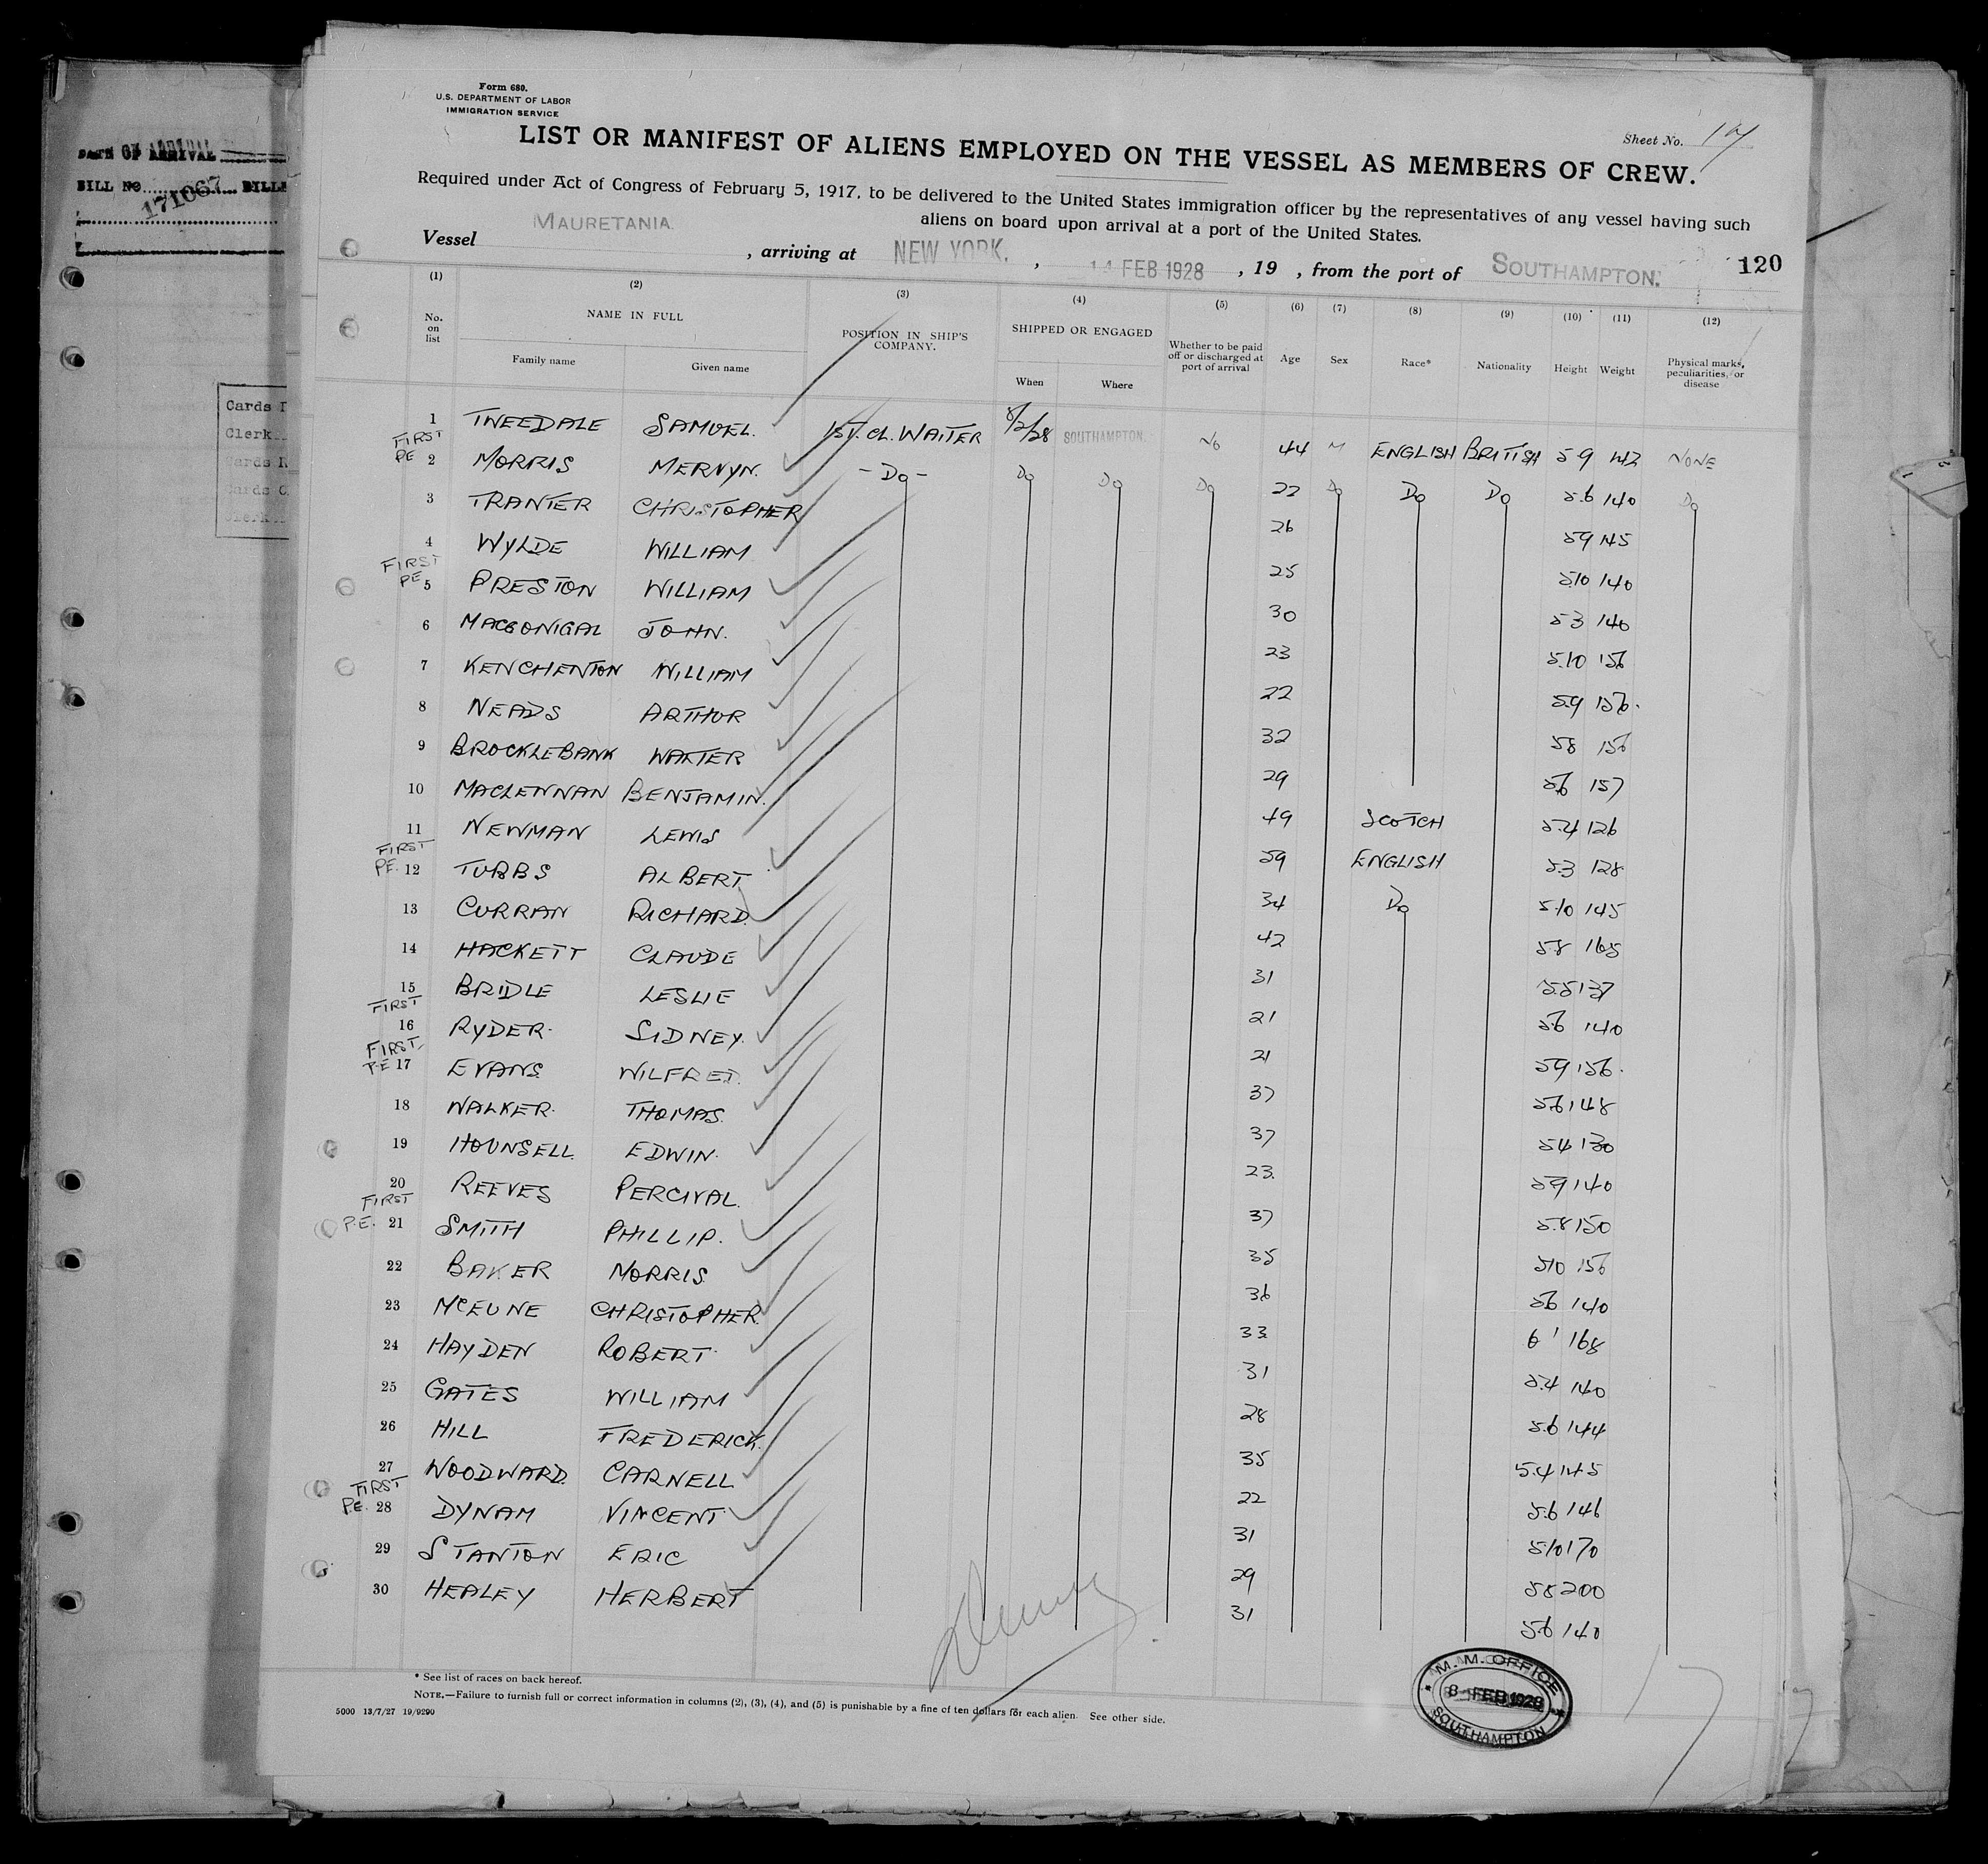 Form 680.
U.S. DEPARTMENT OF LABOR
IMMIGRATION SERVICE
Sheet No.
LIST OR MANIFEST OF ALIENS EMPLOYED ON THE VESSEL AS MEMBERS OF CREW.
Required under Act of Congress of February 5, 1917, to be delivered to the United States immigration officer by the representatives of any vessel having such
aliens on board upon arrival at a port of the United States.
Vessel MAURETANIA. , arriving at NEW YORK. , 14 FEB 1928 , 19 , from the port of SOUTHAMPTON. 120
(1) (2) (3) (4) (5) (6) (7) (8) (9) (10) (11) (12)
No. on list NAME IN FULL POSITION IN SHIP'S COMPANY. SHIPPED OR ENGAGED Whether to be paid off or discharged at port of arrival Age Sex Race* Nationality Height Weight Physical marks, peculiarities, or disease
Family name Given name When Where
1 TWEEDALE SAMUEL. 1ST. CL. WAITER 8/2/28 SOUTHAMPTON. No 44 M ENGLISH BRITISH 5 9 NONE
FIRST PE 2 MORRIS MERVYN. - Do - Do Do Do 22 Do Do Do 5.6 140 Do
3 TRANTER CHRISTOPHER 26 5 9 145
4 WYLDE WILLIAM 25 5.10 140
FIRST PE 5 PRESTON WILLIAM 30 5 3 140
6 MACGONIGAL JOHN. 23 5.10 156
7 KENCHENTON WILLIAM 22 5.9 156.
8 NEADS ARTHUR 32 58 156
9 BROCKLEBANK WALTER 29 56 157
10 MACLENNAN BENJAMIN. 49 SCOTCH 5.4 126
11 NEWMAN LEWIS 59 ENGLISH 5.3 128
FIRST PE. 12 TUBBS ALBERT 34 Do 5.10 145
13 CURRAN RICHARD. 42 5.8 165
14 HACKETT CLAUDE 31 5.5 137
15 BRIDLE LESLIE 21 56 140
FIRST 16 RYDER. SIDNEY. 21 59 156.
FIRST, P.E 17 EVANS. WILFRED. 37 56 148
18 WALKER. THOMAS. 37 54 130
19 HOUNSELL. EDWIN. 23. 59 140
20 REEVES PERCIVAL. 37 5.8 150
FIRST P.E. 21 SMITH PHILLIP. 35 510 156
22 BAKER MORRIS. 36 56 140
23 McEUNE CHRISTOPHER. 33 6' 168
24 HAYDEN ROBERT. 31 5.4 140
25 GATES WILLIAM 28 5.6 144
26 HILL FREDERICK. 35 5.4 145
27 WOODWARD. CARNELL 22 5.6 146
FIRST P.E. 28 DYNAM VINCENT 31 5.10 170
29 STANTON ERIC 29 58 200
30 HEALEY HERBERT 31 5.6 140
* See list of races on back hereof.
NOTE.—Failure to furnish full or correct information in columns (2), (3), (4), and (5) is punishable by a fine of ten dollars for each alien. See other side.
5000 13/7/27 19/9290
M. M. OFFICE
8 FEB 1928
SOUTHAMPTON
DATE OF ARRIVAL
BILL No. 171067
Cards
Clerk
Cards
Cards
Clerk